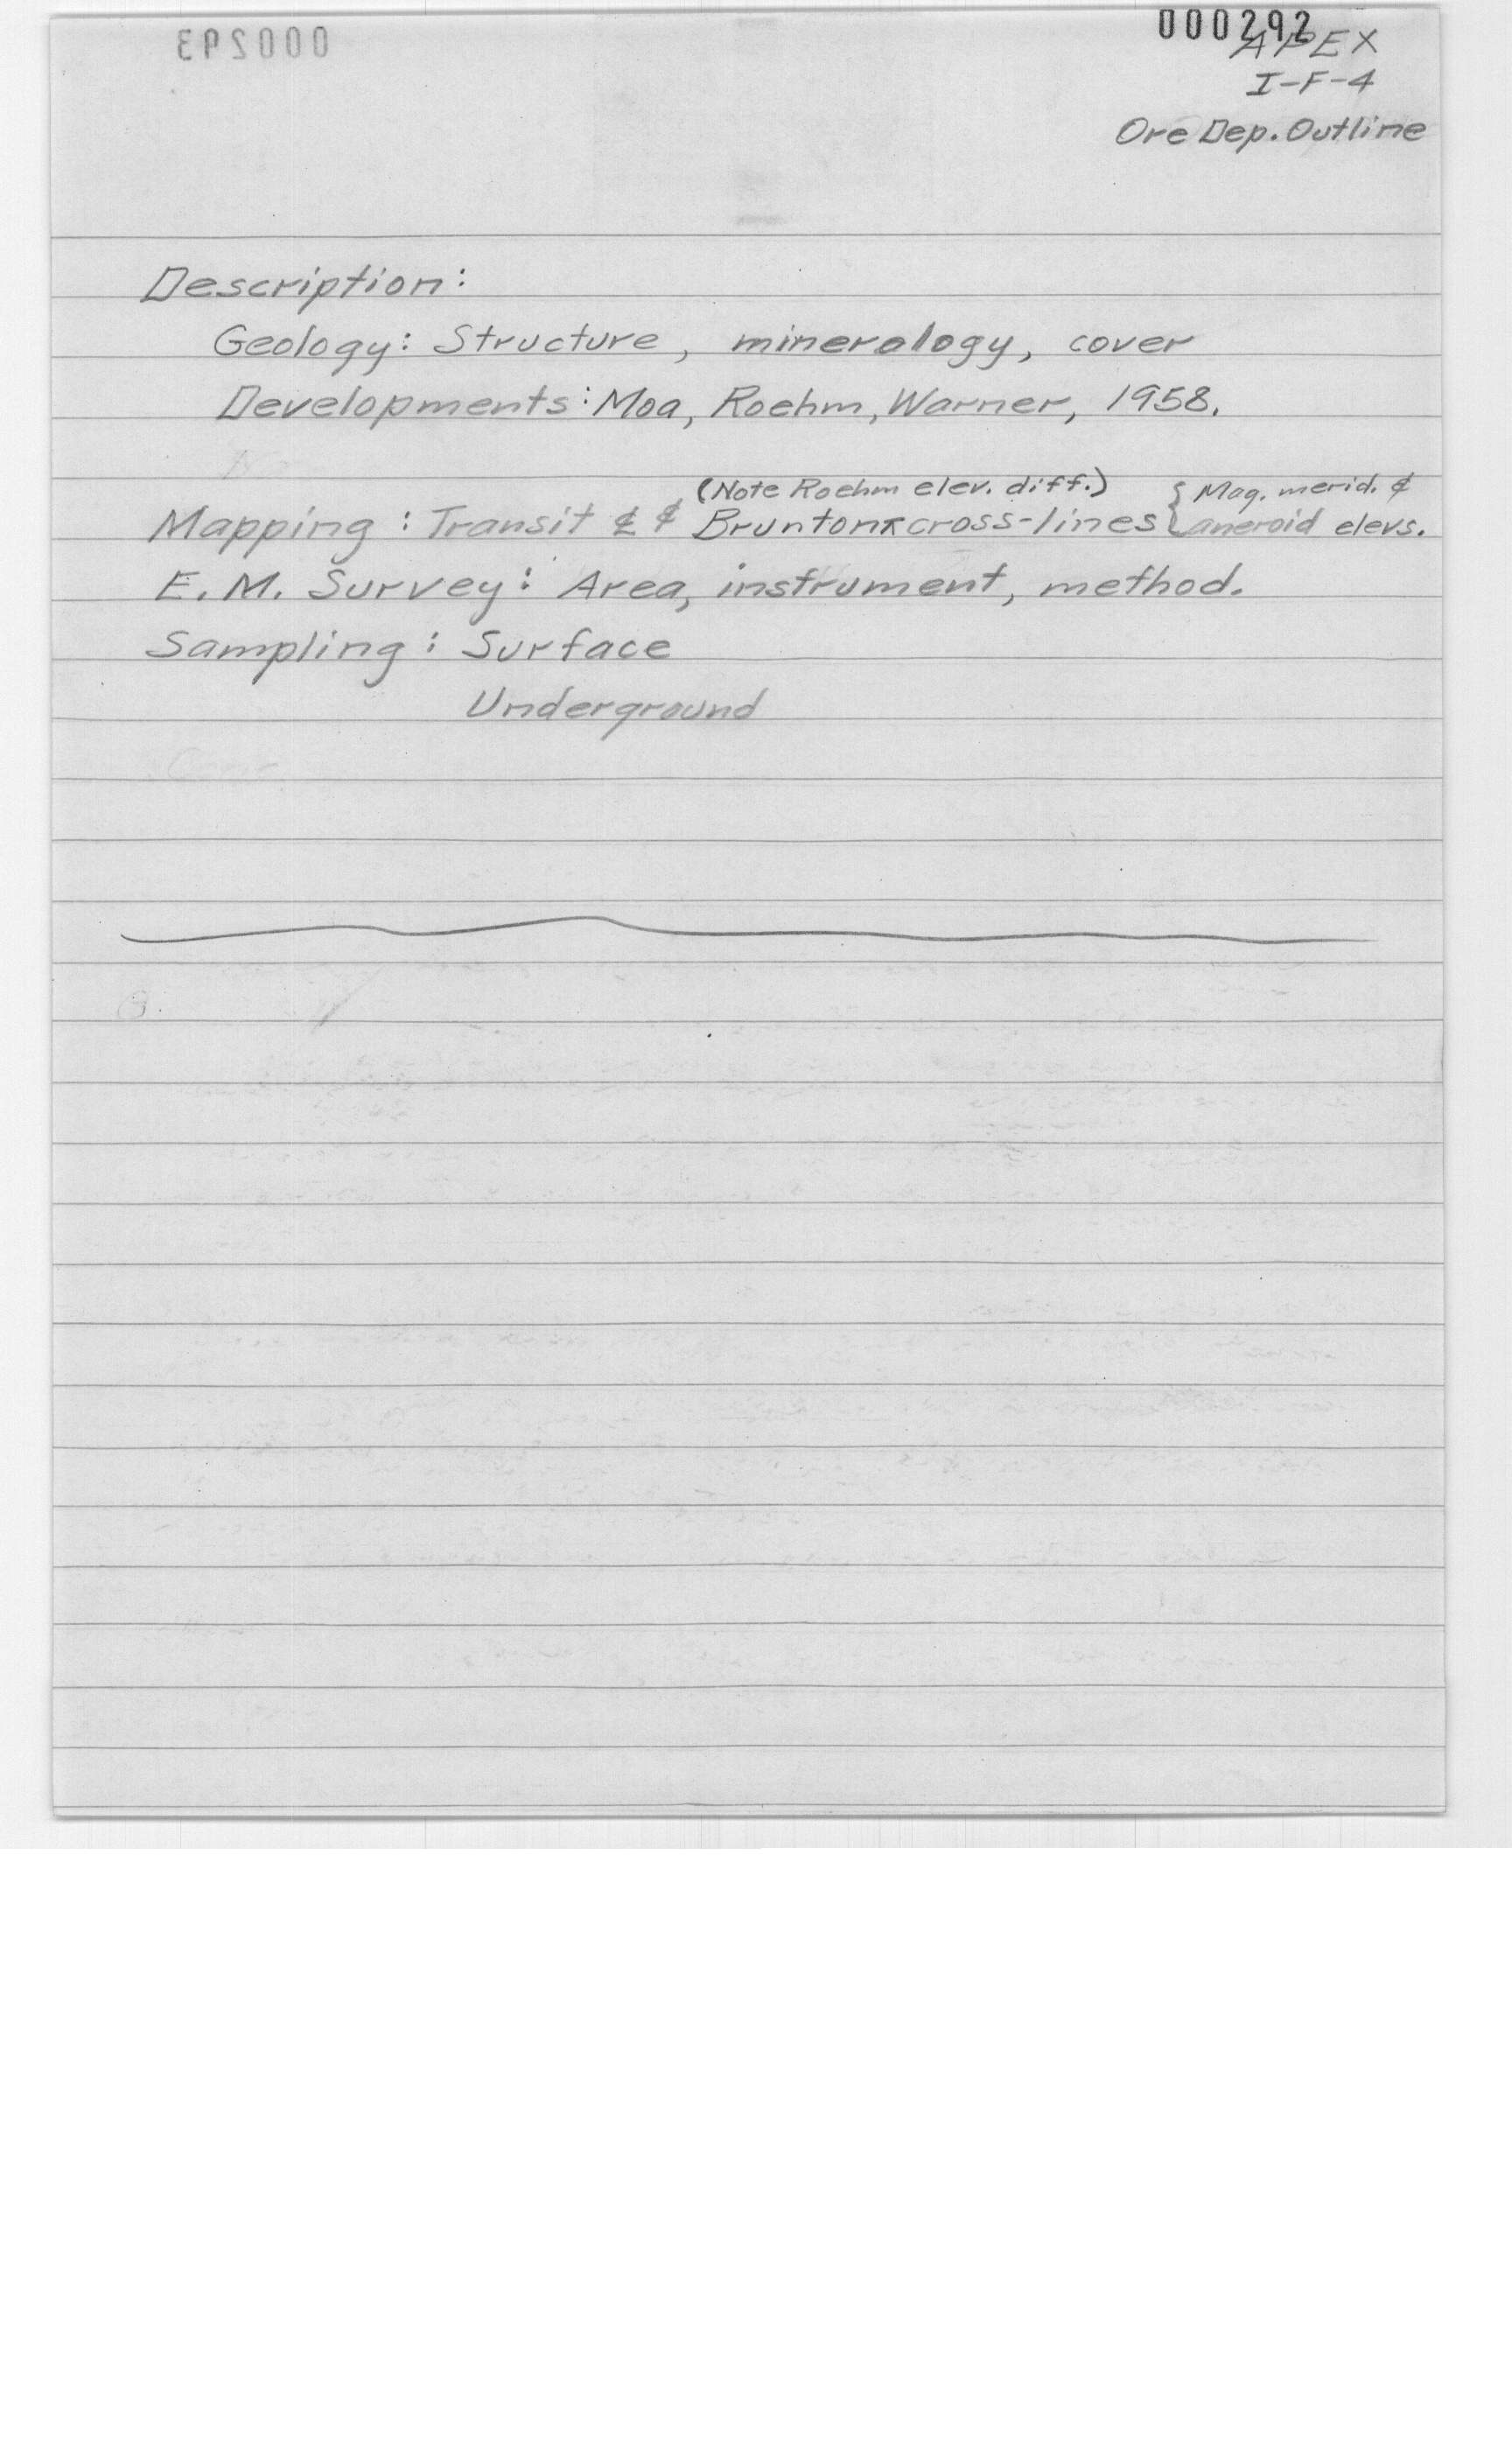 000292
APEX
I-F-4
Ore Dep. Outline
Description:
Geology: Structure, minerology, cover
Developments: Moa, Roehm, Warner, 1958.
(Note Roehm elev. diff.) { Mag. merid. ¢
Mapping: Transit ⅊ ¢ Brunton cross-lines { aneroid elevs.
E. M. Survey: Area, instrument, method.
Sampling: Surface
Underground